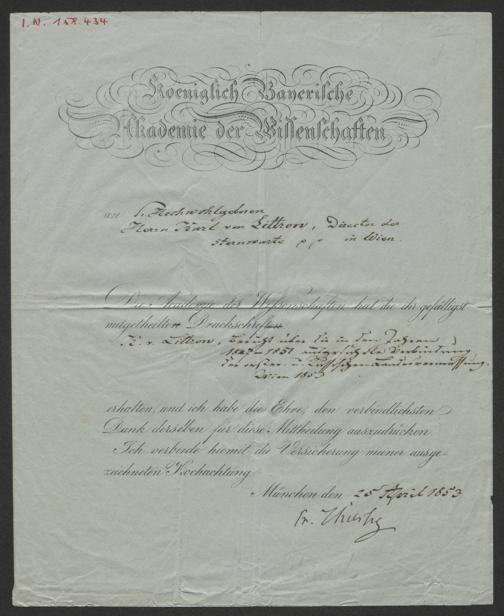 I.N. 158.434
Koeniglich Bayerische
Akademie der Wissenschaften
an S. Hochwohlgeboren
Herrn Karl von Littrow, Director der
Sternwarte p. p. in Wien.
Die Akademie der Wissenschaften hat die ihr gefälligst
mitgetheilten Druckschriften
K. v. Littrow, Bericht über die in den Jahren
1847–1851 ausgeführte Verbindung
der österr. u. Russischen Landesvermessung.
Wien 1853
erhalten, und ich habe die Ehre, den verbindlichsten
Dank derselben für diese Mittheilung auszudrücken.
Ich verbinde hiemit die Versicherung meiner ausge-
zeichneten Hochachtung
München den 25 April 1853
Fr. Thiersch